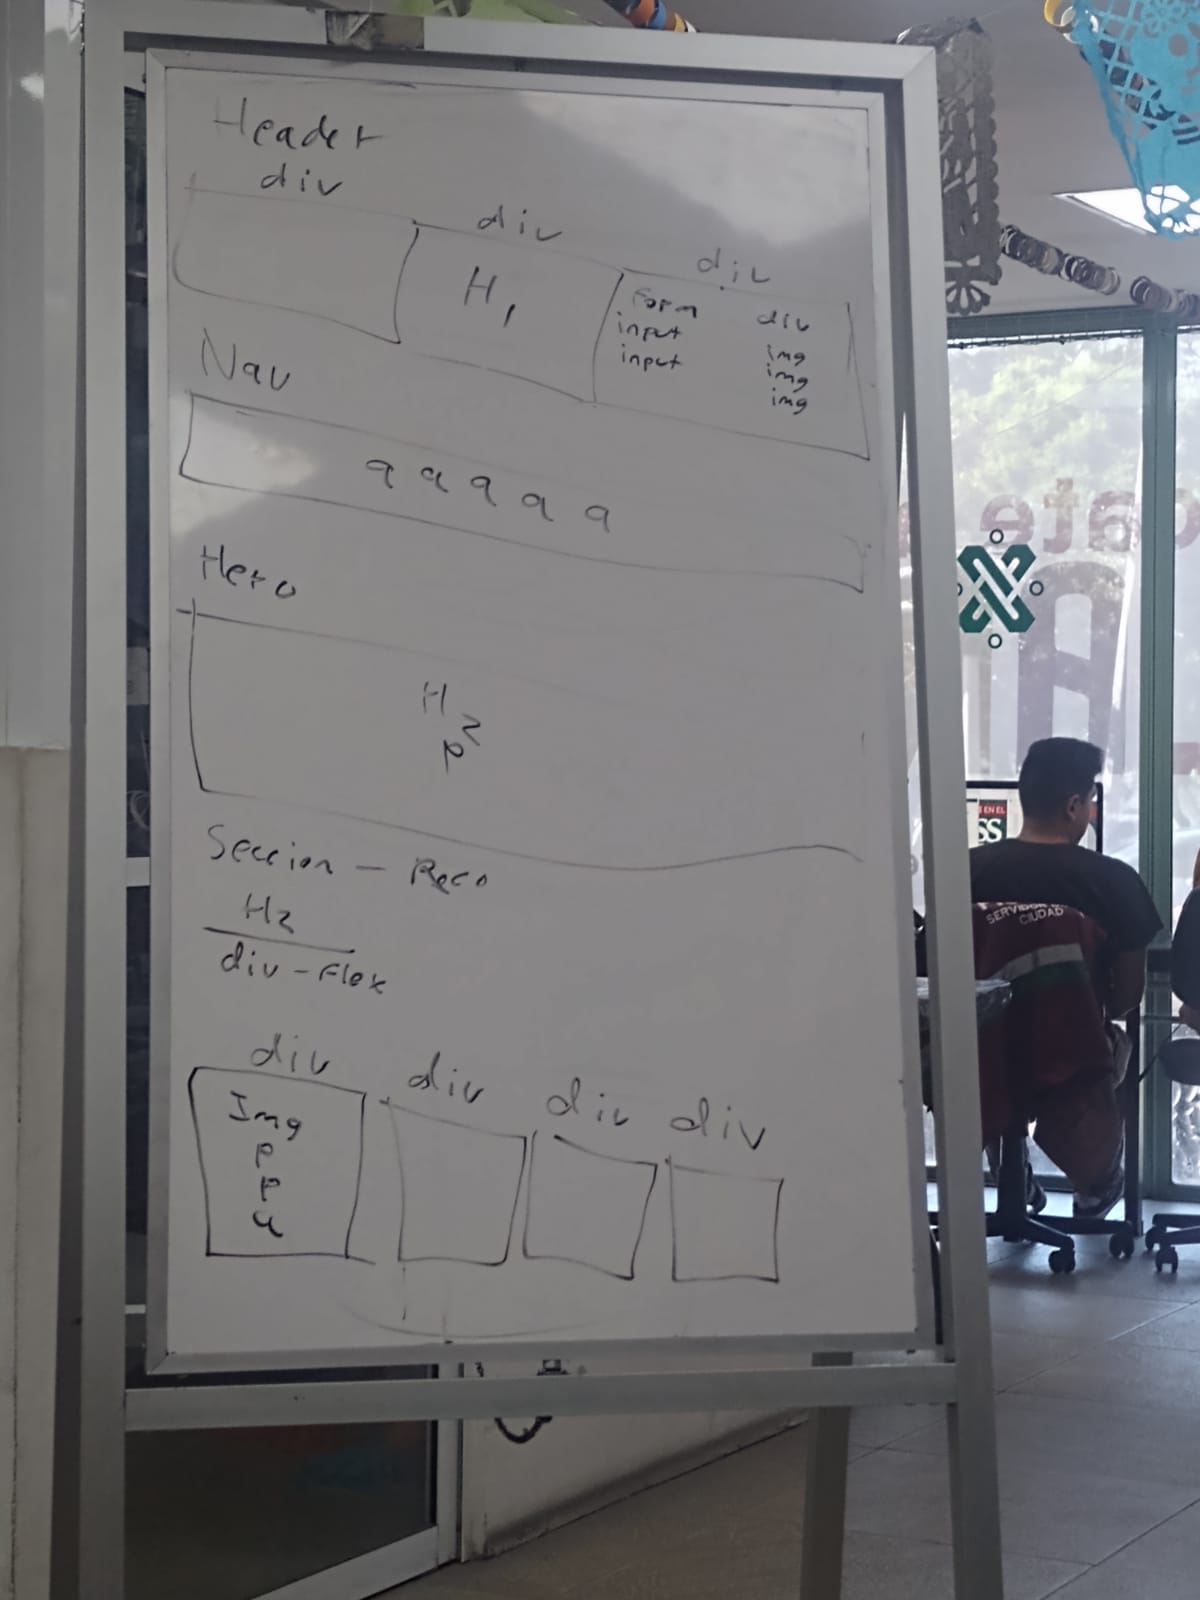 Header
div
div
div
H1
Form
input
input
div
img
img
img
Nav
a a a a a
Hero
H2
p
Seccion - Reco
H2
div-Flex
div
div
div
div
Img
P
P
a
EN EL
SS
CIUDAD